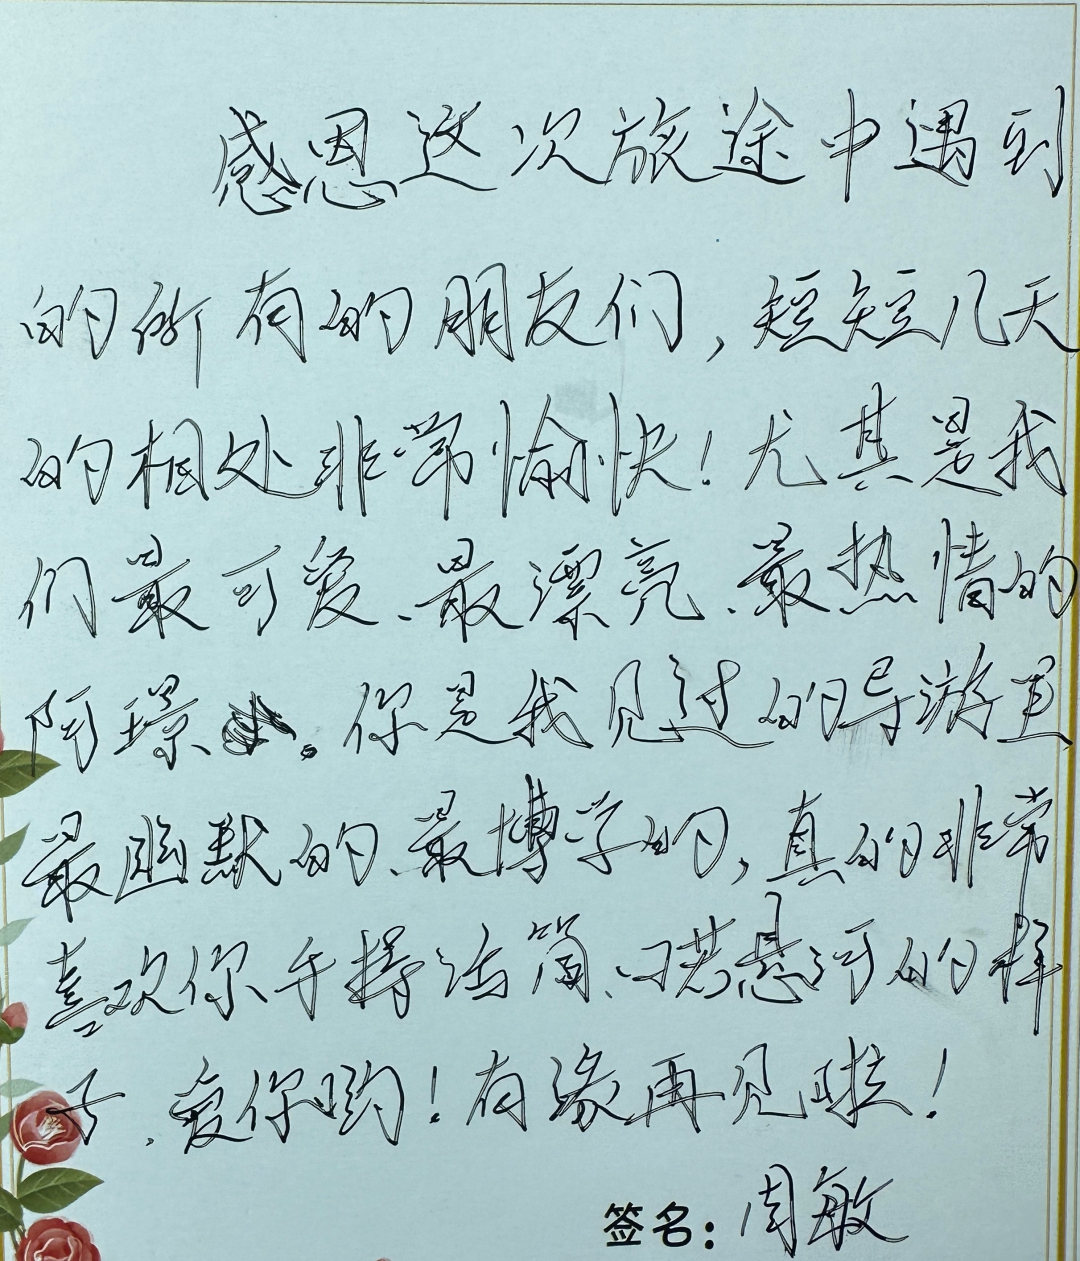 感恩这次旅途中遇到
的所有的朋友们，短短几天
的相处非常愉快！尤其是我
们最可爱、最漂亮、最热情的
阿璟。你是我见过的导游里
最幽默的、最博学的，真的非常
喜欢你手持话筒、口若悬河的样
子，爱你哟！有缘再见啦！
签名：周敏